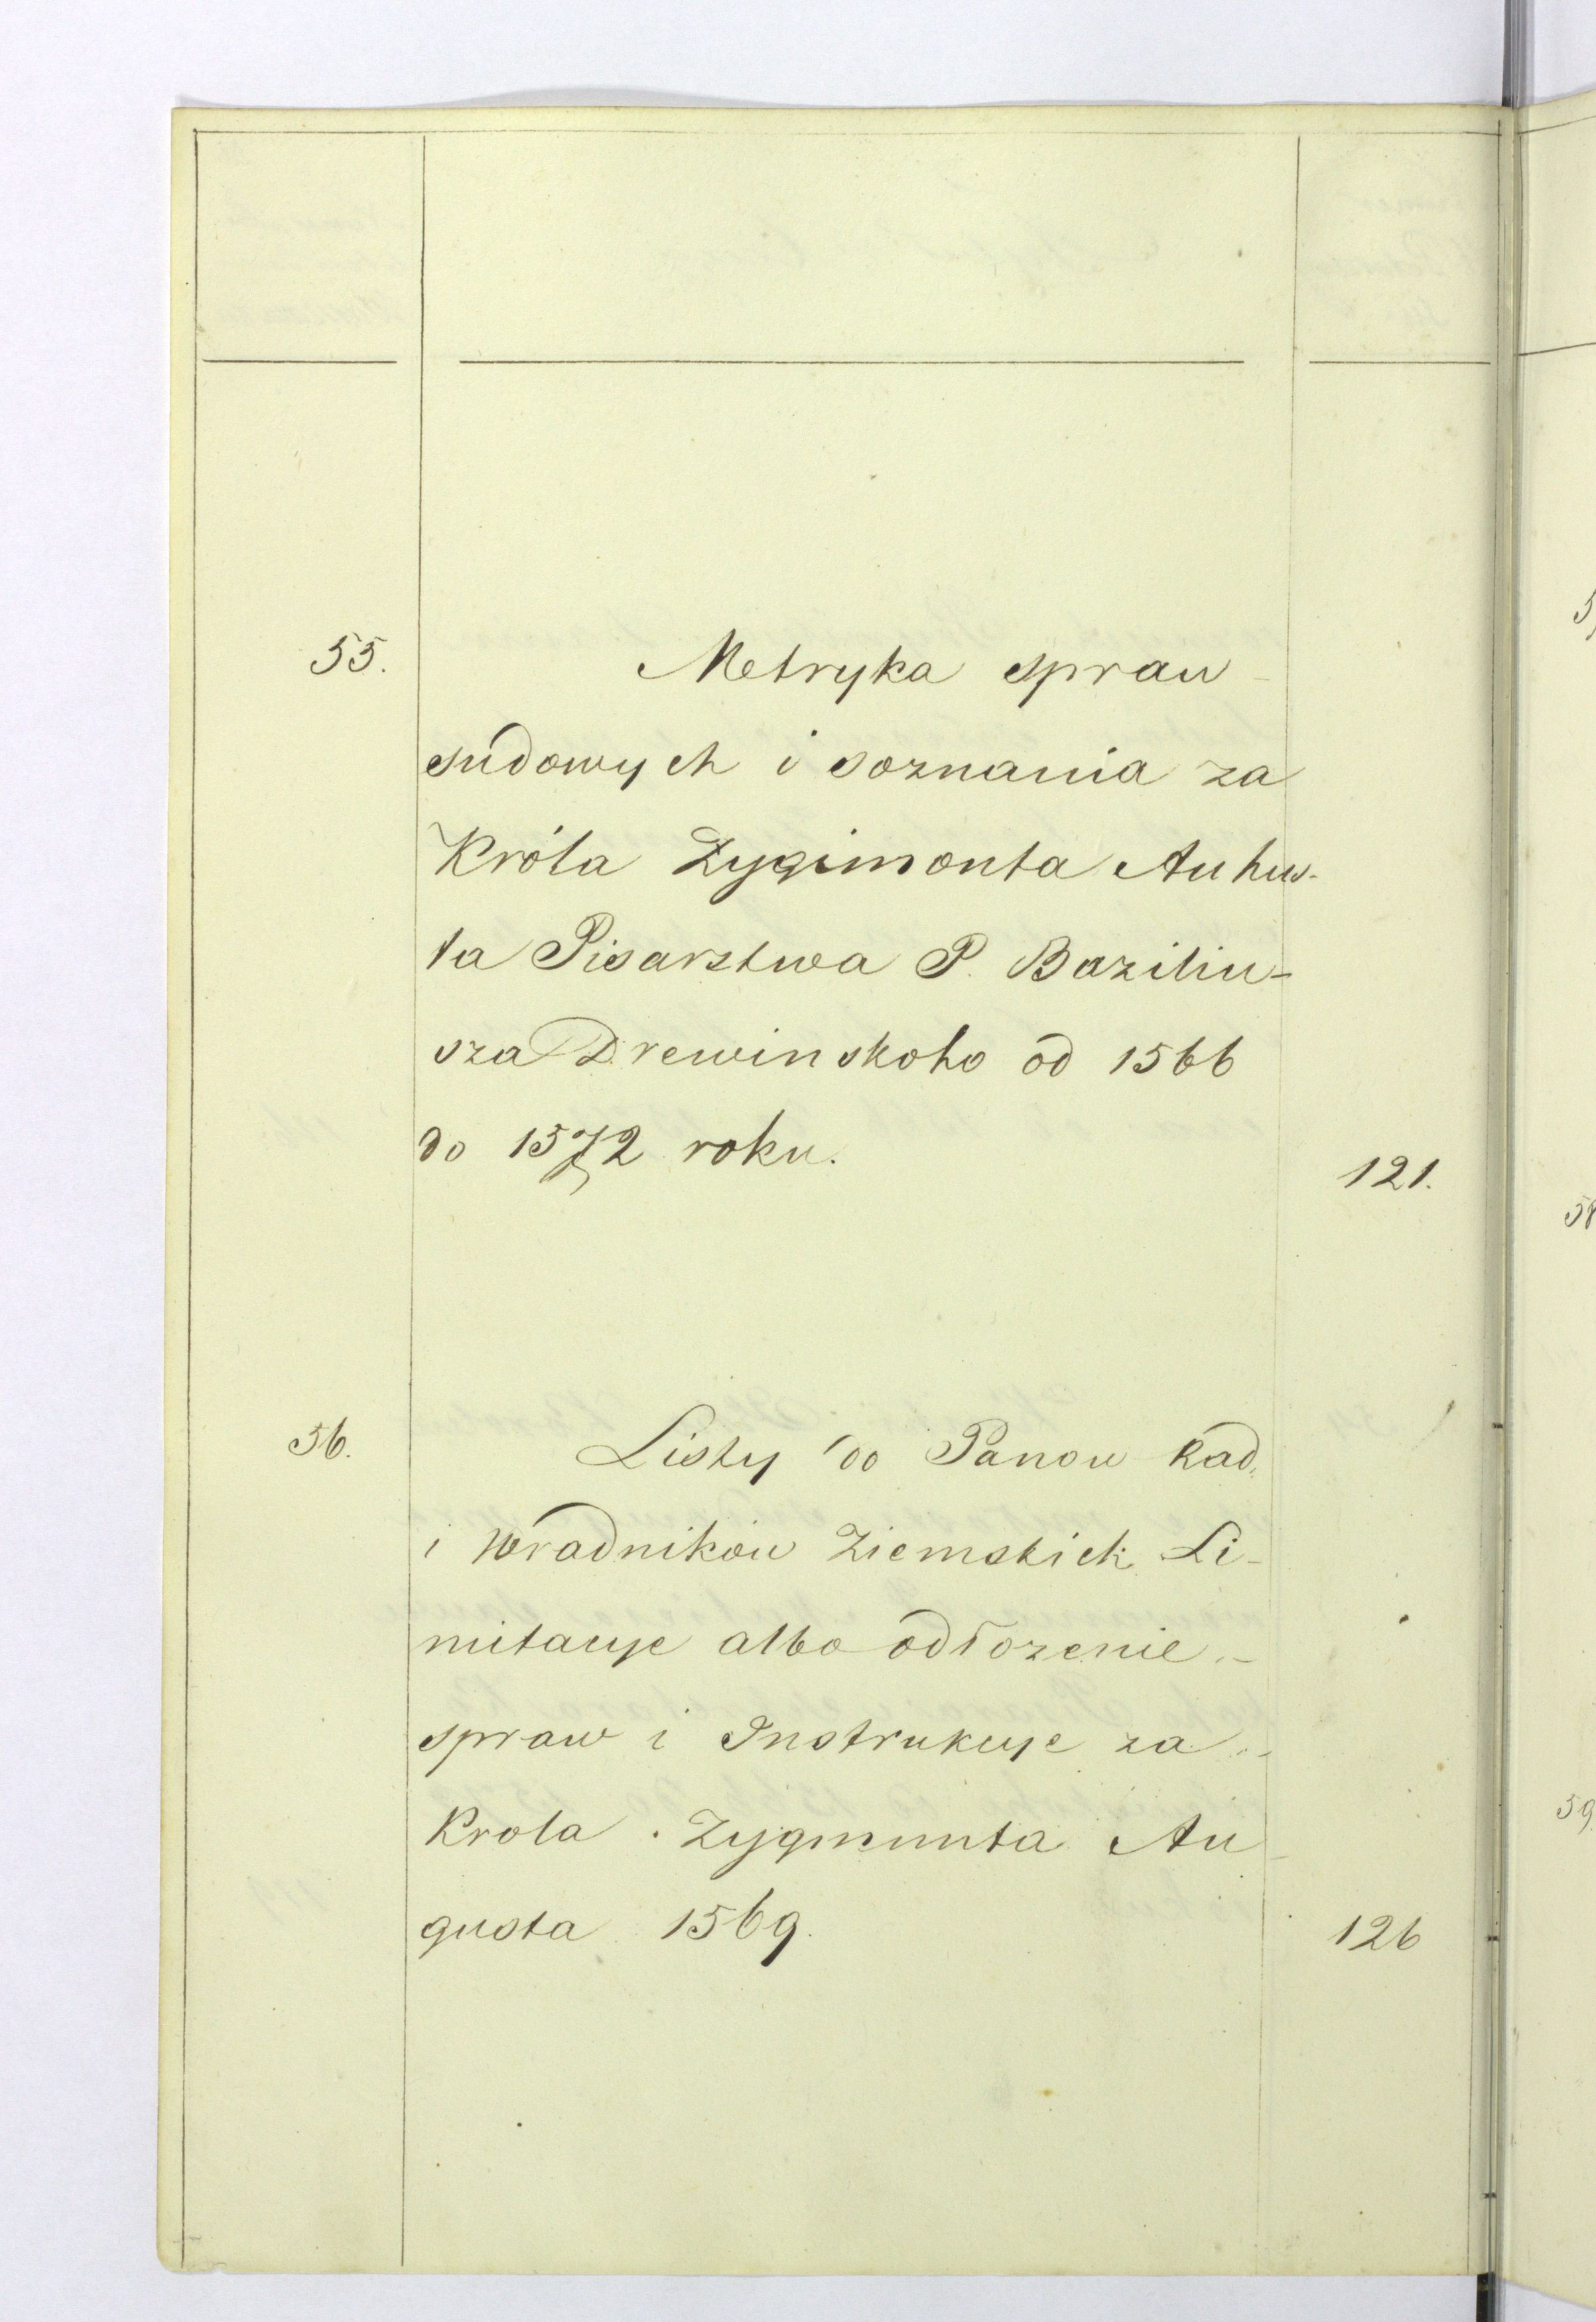 55. Metryka spraw
sudowych i soznania za
Króla Zygimonta Auhus-
ta Pisarstwa P. Baziliu-
sza Drewinskoho od 1566
do 1572 roku. 121.
56. Listy do Panow Rad,
i Wradników Ziemskich Li-
mitacye albo odłozenie -
spraw i Instrukcye za -
Krola Zygmunta Au-
gusta 1569. 126